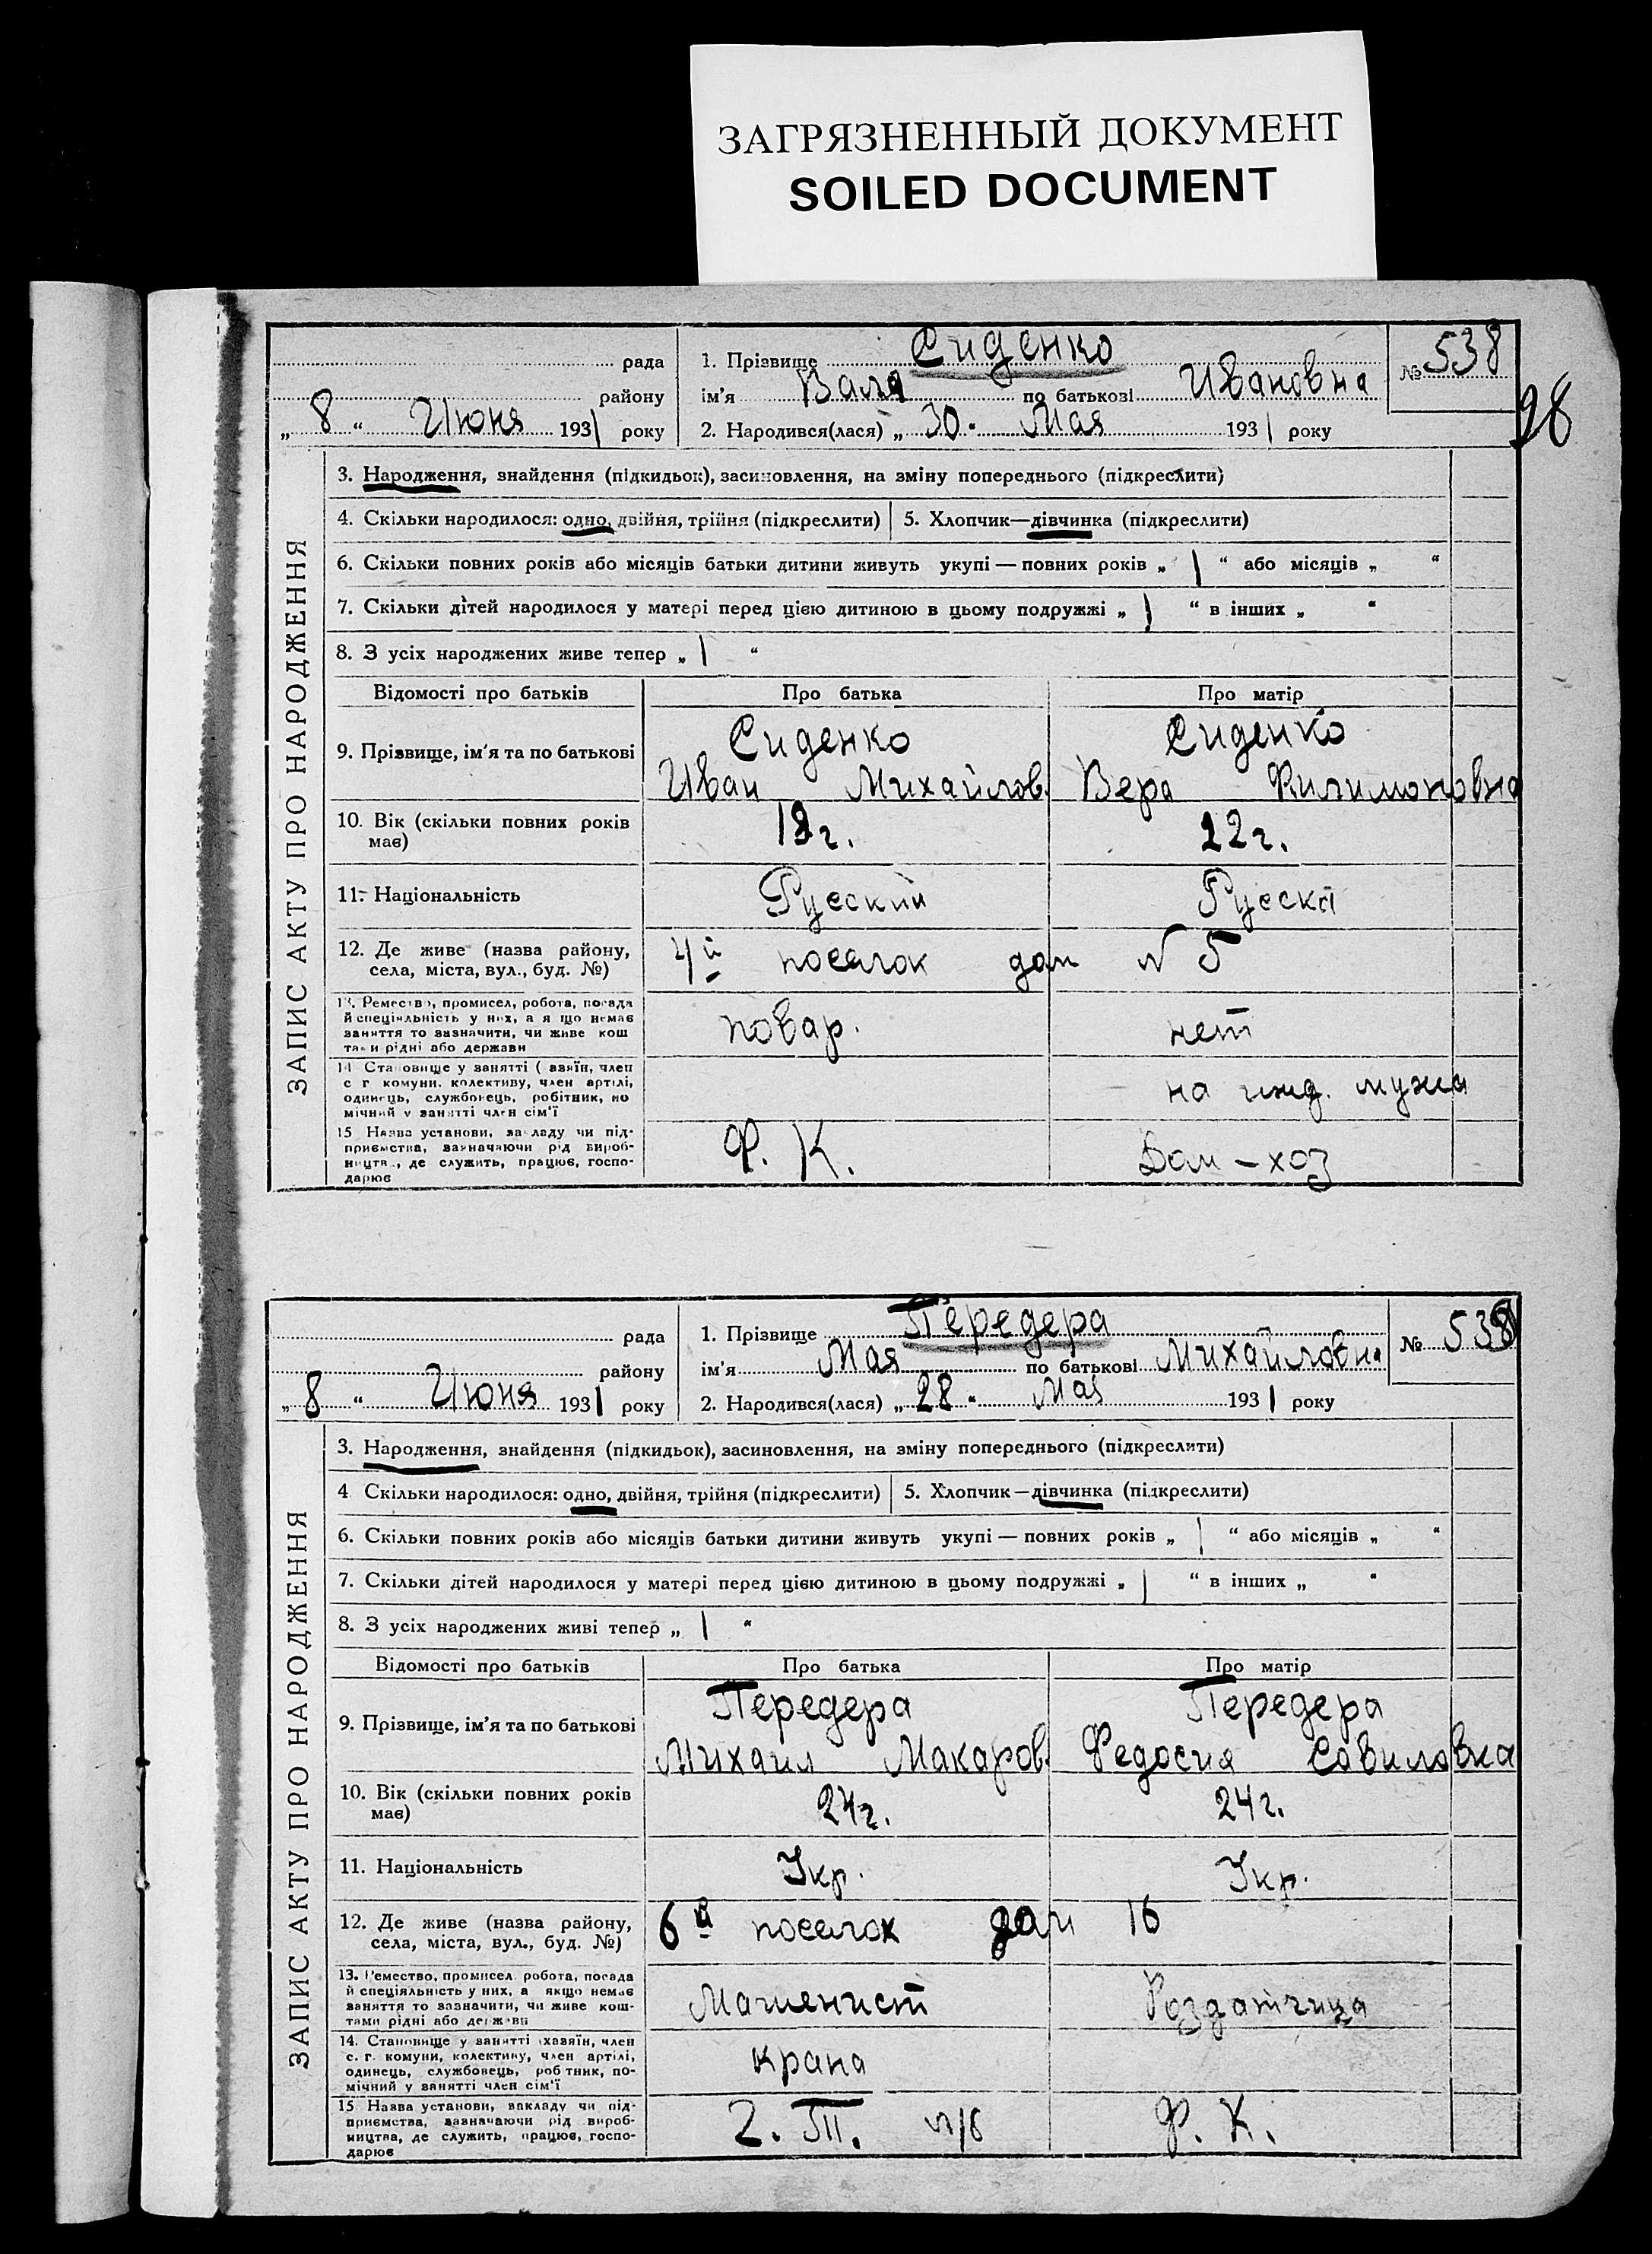 ЗАГРЯЗНЕННЫЙ ДОКУМЕНТ
SOILED DOCUMENT
рада
району
„ 8 “ Июня 1931 року
1. Прізвище Сиденко
ім'я Валя по батькові Ивановна
2. Народився(лася) „ 30 “ Мая 1931 року
№ 538
98
ЗАПИС АКТУ ПРО НАРОДЖЕННЯ
3. Народження, знайдення (підкидьок), засиновлення, на зміну попереднього (підкреслити)
4. Скільки народилося: одно, двійня, трійня (підкреслити) 5. Хлопчик—дівчинка (підкреслити)
6. Скільки повних років або місяців батьки дитини живуть укупі — повних років „ 1 “ або місяців „ “
7. Скільки дітей народилося у матері перед цією дитиною в цьому подружжі „ 1 “ в інших „ “
8. З усіх народжених живе тепер „ 1 “
Відомості про батьків Про батька Про матір
9. Прізвище, ім'я та по батькові
Сиденко Сиденко
Иван Михайлов. Вера Филимоновна
10. Вік (скільки повних років
має)
22г.
11. Національність Русский Русска
12. Де живе (назва району,
села, міста, вул., буд. №)
4й поселок дом № 5
13. Ремество, промисел, робота, посада
й спеціяльність у них, а якщо немає
заняття то зазначити, чи живе кош
тами рідні або держави
повар. нет
14 Становище у занятті (хазяїн, член
с г комуни, колективу, член артілі,
одинець, службовець, робітник, по
мічний у занятті член сім'ї
на ижд. мужа
15 Назва установи, закладу чи під-
приємства, зазначаючи рід вироб-
ництва, де служить, працює, госпо-
дарює
Ф. К. Дом – хоз
рада
району
„ 8 “ Июня 1931 року
1. Прізвище Передера
ім'я Мая по батькові Михайловна
2. Народився(лася) „ 28 “ Мая 1931 року
№ 539
ЗАПИС АКТУ ПРО НАРОДЖЕННЯ
3. Народження, знайдення (підкидьок), засиновлення, на зміну попереднього (підкреслити)
4 Скільки народилося: одно, двійня, трійня (підкреслити) 5. Хлопчик—дівчинка (підкреслити)
6. Скільки повних років або місяців батьки дитини живуть укупі — повних років „ 1 “ або місяців „ “
7. Скільки дітей народилося у матері перед цією дитиною в цьому подружжі „ 1 “ в інших „ “
8. З усіх народжених живі тепер „ 1 “
Відомості про батьків Про батька Про матір
9. Прізвище, ім'я та по батькові
Передера Передера
Михаил Макаров. Федосия Савиловна
10. Вік (скільки повних років
має)
24г. 24г.
11. Національність Укр. Укр.
12. Де живе (назва району,
села, міста, вул., буд. №)
6й поселок дом 16
13. Ремество, промисел робота, посада
й спеціяльність у них, а якщо немає
заняття то зазначити, чи живе кош-
тами рідні або держави
Машенист Роздатчица
14. Становище у занятті хазяїн, член
с. г. комуни, колективу, член артілі,
одинець, службовець, робітник, по-
мічний у занятті член сім'ї
крана
15 Назва установи, закладу чи під-
приємства, зазначаючи рід вироб-
ництва, де служить, працює, госпо-
дарює
Ф. К.